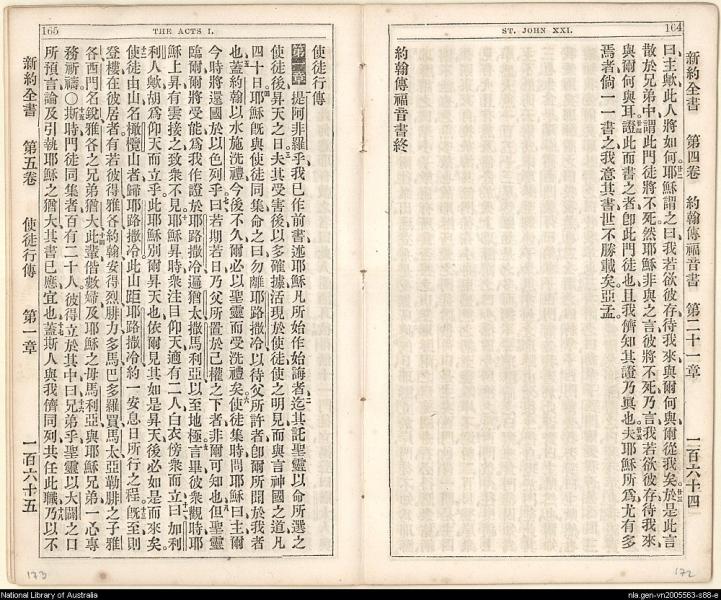 164
ST. JOHN XXI.
新約全書　第四卷　約翰傳福音書　第二十一章　一百六十四
曰主歟此人將如何耶穌謂之曰我若欲彼存待我來與爾何與爾從我矣於是此言
散於兄弟中謂此門徒將不死然耶穌非與之言彼將不死乃言我若欲彼存待我來
與爾何與耳證此而書之者卽此門徒也且我儕知其證乃眞也夫耶穌所爲尤有多
焉者倘一一書之我意其書世不勝載矣亞孟
約翰傳福音書終
165
THE ACTS I.
使徒行傳
第一章提阿非羅乎我已作前書述耶穌凡所始作始誨者迄其託聖靈以命所選之
使徒後昇天之日夫其受害後以多確據活現於使徒使之明見而與言神國之道凡
四十日耶穌旣與使徒同集命之曰勿離耶路撒冷以待父所許者卽爾所聞於我者
也蓋約翰以水施洗禮今後不久爾必以聖靈而受洗禮矣使徒集時問耶穌曰主爾
今時將還國於以色列乎曰若期若日乃父所置於己權之下者非爾可知也但聖靈
臨爾爾將受能爲我作證於耶路撒冷徧猶太撒馬利亞以至地極言畢彼衆觀時耶
穌上昇有雲接之致衆不見耶穌昇時衆注目仰天適有二人白衣傍衆而立曰加利
利人歟胡爲仰天而立乎此耶穌別爾昇天也依爾見其如是昇天後必如是而來矣
使徒由山名橄欖山者歸耶路撒冷此山距耶路撒冷約一安息日所行之程旣至則
登樓在彼居者有若彼得雅各約翰安得烈腓力多馬巴多羅買馬太亞勒腓之子雅
各西門名銳雅各之兄弟猶大此輩偕數婦及耶穌之母馬利亞與耶穌兄弟一心專
務祈禱〇斯時門徒同集者百有二十人彼得立於其中曰兄弟乎聖靈以大闢之口
所預言論及引執耶穌之猶大其書已應宜也蓋斯人與我儕同列共任此職乃以不
新約全書　第五卷　使徒行傳　第一章　一百六十五
173
172
National Library of Australia
nla.gen-vn2005563-s88-e